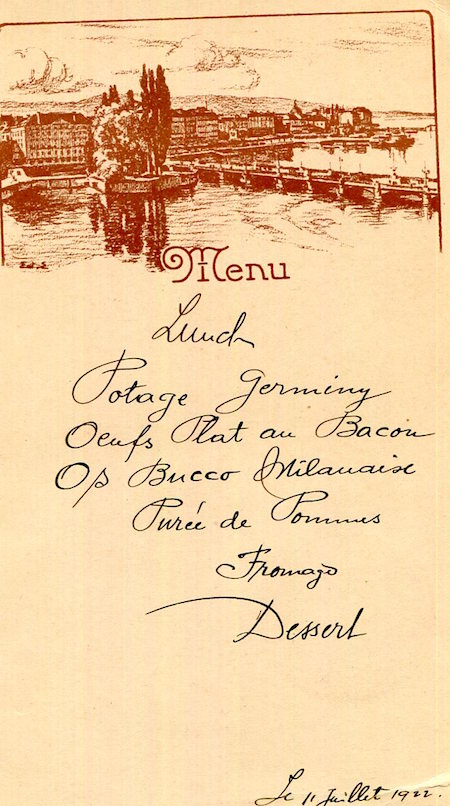 Menu
Lunch
Potage Germiny
Oeufs Plat au Bacon
Os Bucco Milanaise
Purée de Pommes
Fromage
Dessert
Le 11 Juillet 1922.